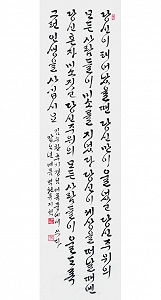 당신이 태어났을 땐 당신만이 울었고 당신 주위의
모든 사람들이 미소를 지었다 당신이 세상을 떠날 때엔
당신 혼자 미소짓고 당신 주위의 모든 사람들이 울도록
그런 인생을 사십시오